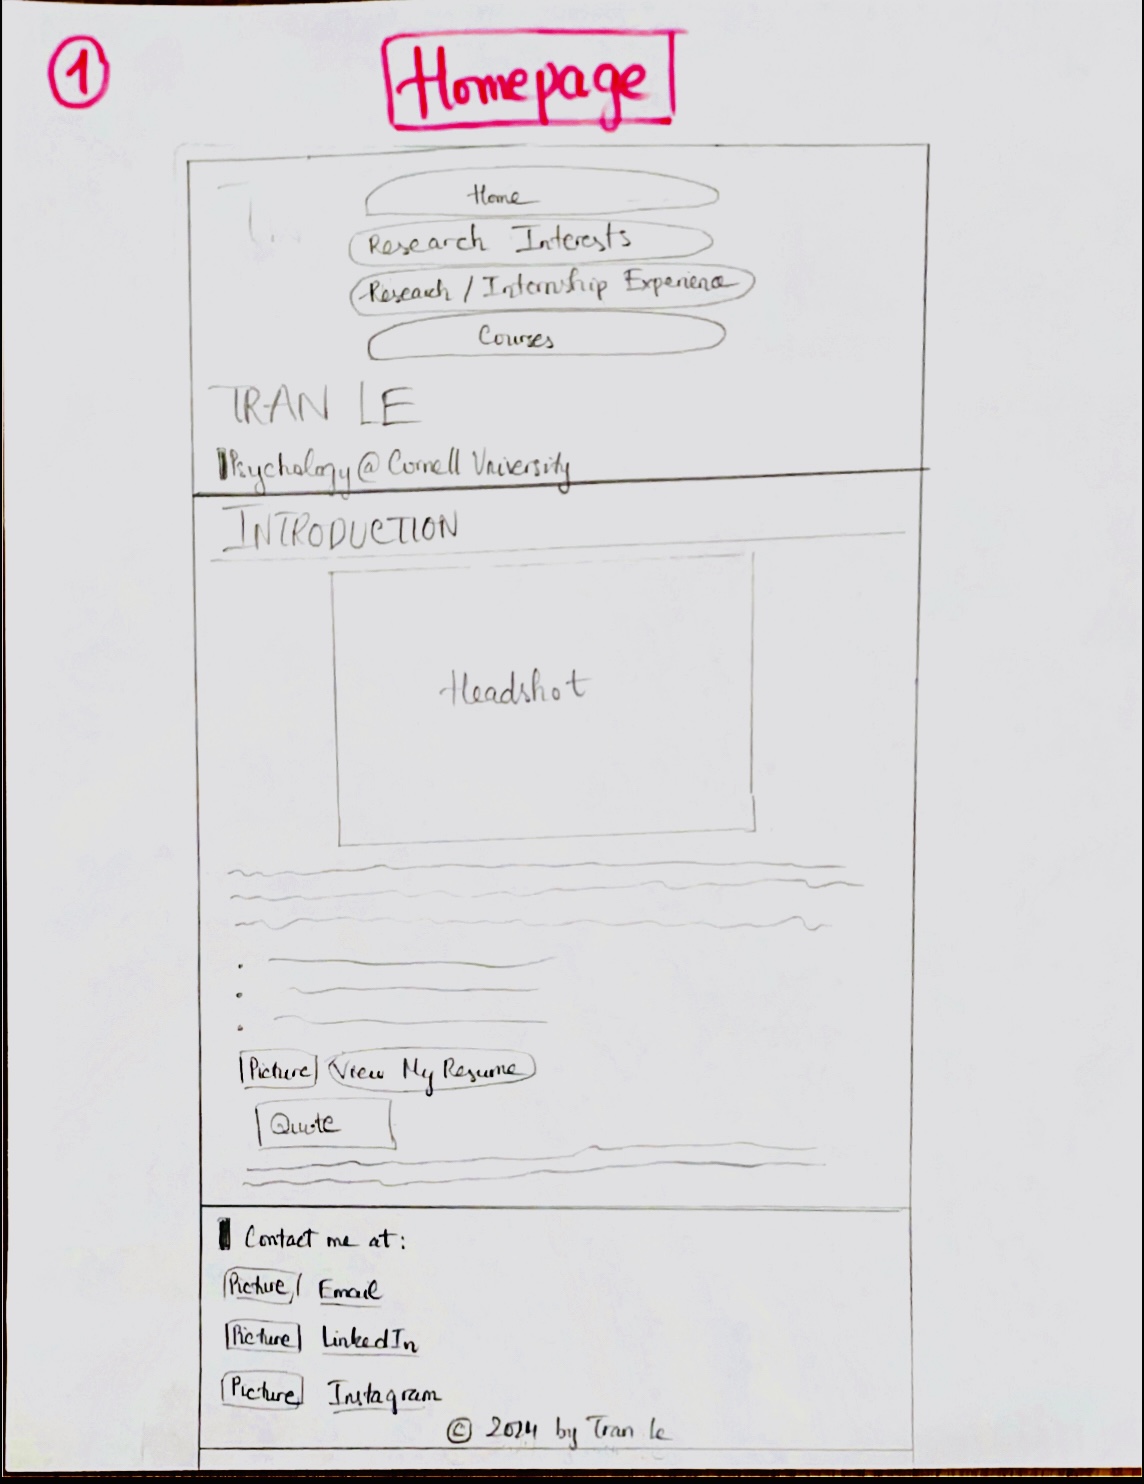 1
Homepage
Home
Research Interests
Research / Internship Experience
Courses
TRAN LE
Psychology @ Cornell University
INTRODUCTION
Headshot
Picture View My Resume
Quote
Contact me at:
Picture Email
Picture LinkedIn
Picture Instagram
© 2024 by Tran Le